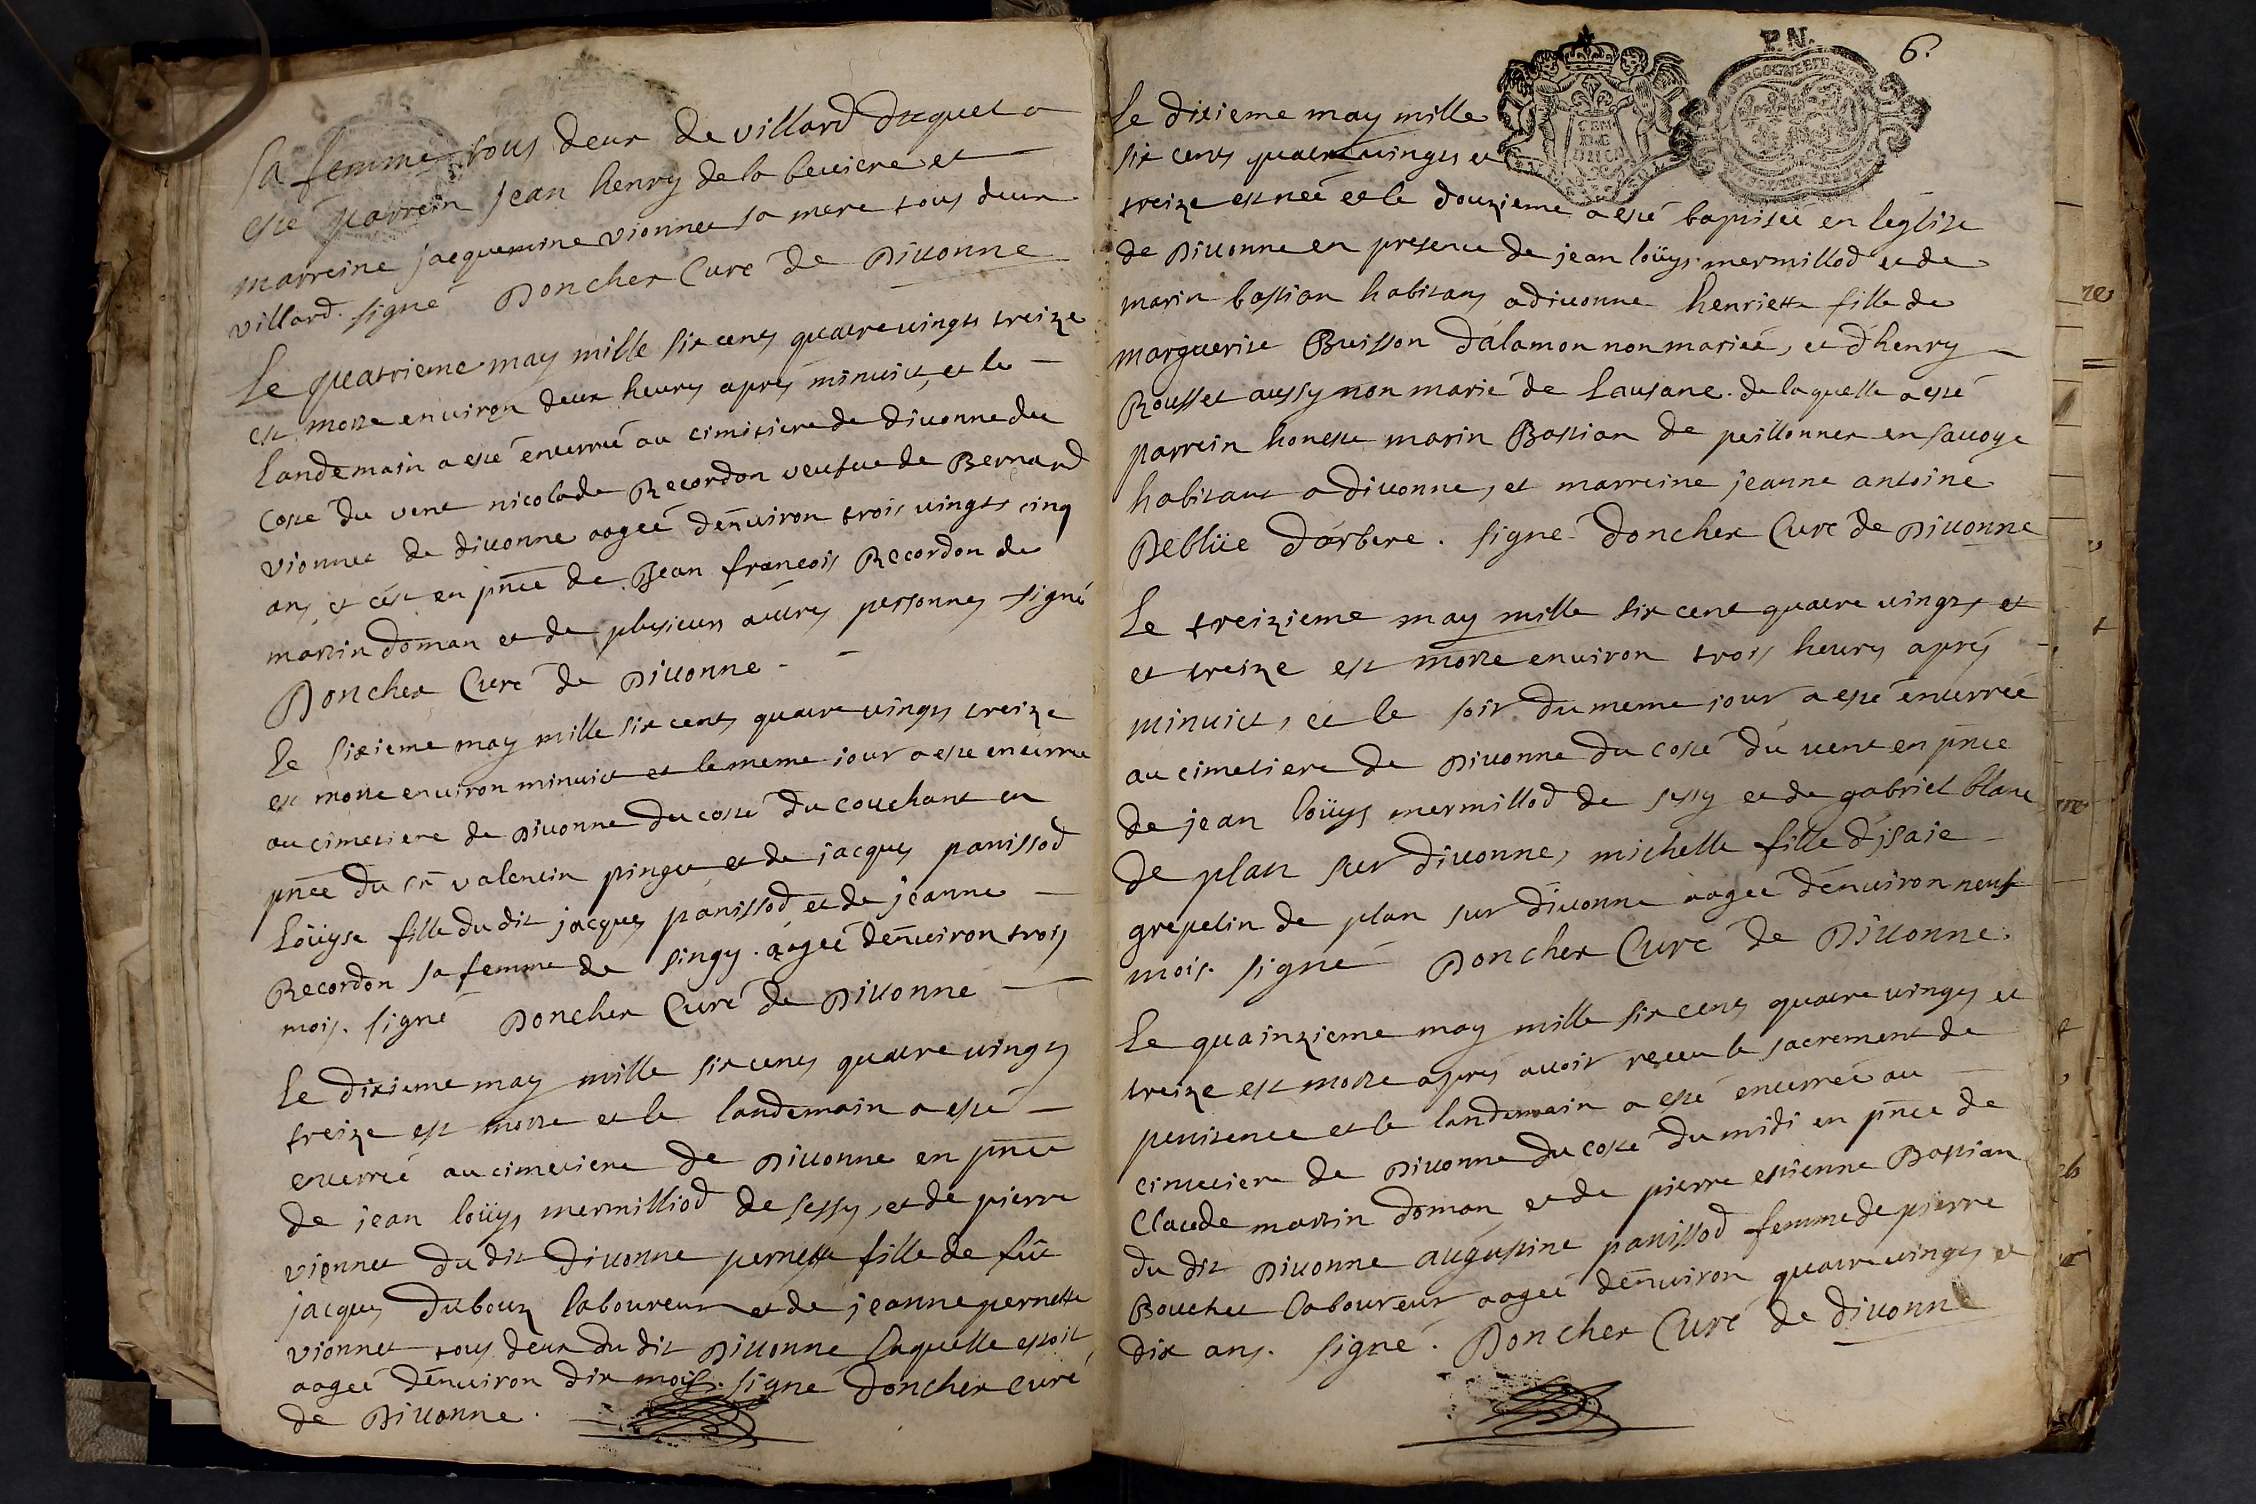 sa femme tous deux de villard duquel a
esté parrein jean henry de la beviere et
marreine jacquemine vionnet sa mere tous deux
villard. signé Doncher Curé de Divonne
Le quatrieme may mille six cents quatre vingts treize
est morte environ deux heures aprés minuict, et le
landemain a esté enterreé au cimitiere de divonne du
costé du vent nicolade Recordon veufue de Bernard
vionnet de divonne aageé d'environ trois vingts cinq
ans, et c'est en pnce de Jean francois Recordon de
martin doman et de plusieurs autres personnes signé
Doncher Curé de Divonne.
Le sixieme may mille six cents quatre vingts treize
est morte environ minuict et le meme iour a esté enterreé
au cimetiere de Divonne du costé du couchant en
pnce du sr valentin pinget et de jacques panissod
Loüyse fille du dit jacques panissod et de jeanne
Recordon sa femme de singy. aageé d'environ trois
mois. signé Doncher Curé de Divonne
Le dixieme may mille six cents quatre vingts
treize est morte et le landemain a esté
enterreé au cimetiere de Divonne en pnce
de jean loüys mermilliod de sessy, et de pierre
vionnet du dit Divonne pernette fille de fût
jacques dubouz laboureur et de jeanne pernette
vionnet tous deux du dit Divonne laquelle estoit
aageé d'environ dix mois. signé doncher curé
de Divonne.
P.N. 6.
Le dixieme may mille
six cents quatre vingts et
treize est neé et le douzieme a esté baptiseé en leglise
de Divonne en presence de jean loüys mermillod et de
marin bastian habitans a divonne henriette fille de
marguerite Buisson d'alamon non marieé, et d'henry
Rousset aussy non marié de Lausane. de laquelle a esté
parrein honeste marin Bastian de peillonnex en savoye
habitant a divonne, et marreine jeanne antoine
Deblüe d'arbere. signé doncher Curé de Divonne
Le treizieme may mille six cent quatre vingts et
et treize est morte environ trois heures aprés
minuict, et le soir du meme iour a esté enterreé
au cimetiere de Divonne du costé du vent en pnce
de jean loüys mermillod de sessy et de gabriel blanc
de plan sur divonne, michelle fille d'isaie
grepelin de plan sur divonne aageé d'environ neuf
mois. signé Doncher Curé de Divonne.
Le quainzieme may mille six cents quatre vingts et
treize est morte aprés avoir receu le sacrement de
penitence et le landemain a esté enterreé au
cimetiere de Divonne du costé du midi en pnce de
Claude martin doman, et de pierre estienne Bastian
du dit Divonne augustine panissod femme de pierre
Bouchet laboureur aageé d'environ quatre vingts et
dix ans. signé. Doncher Curé de divonne